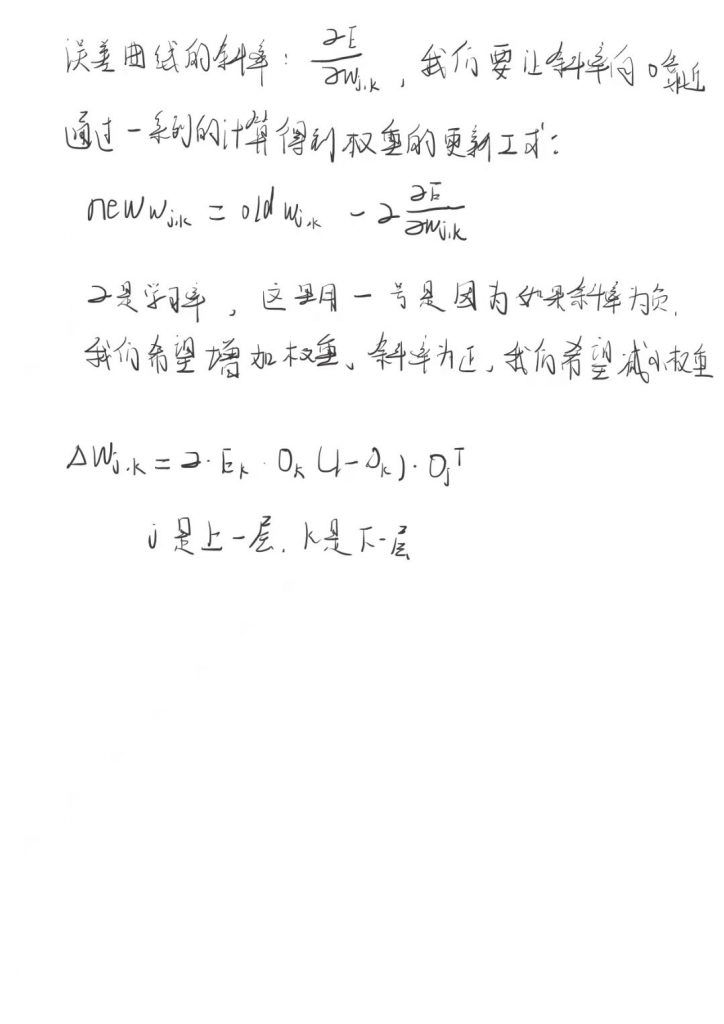 误差曲线的斜率: ∂E/∂w_{j,k}, 我们要让斜率向0靠近
通过一系列的计算得到权重的更新公式:
new w_{j,k} = old w_{j,k} - α ∂E/∂w_{j,k}
α是学习率, 这里用一号是因为如果斜率为负,
我们希望增加权重、斜率为正, 我们希望减小权重
ΔW_{j,k} = α · E_k · O_k (1-O_k) · O_j^T
j是上一层, k是下一层